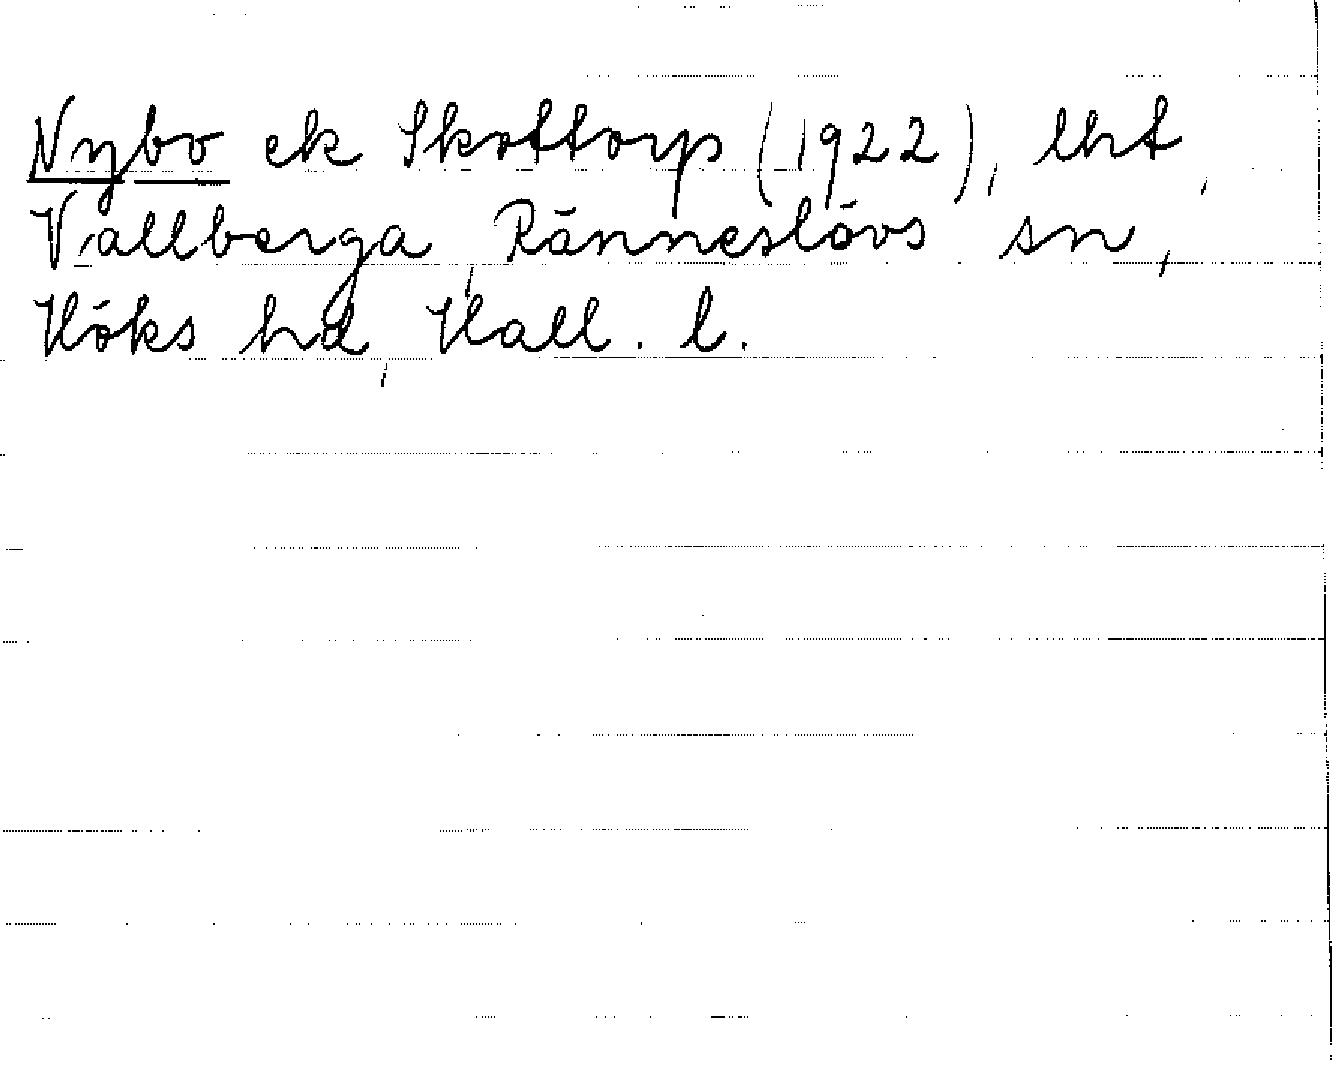 Nybo ek Skottorp (1922), lht,
Vallberga, Ränneslövs sn,
Höks hd, Hall. l.